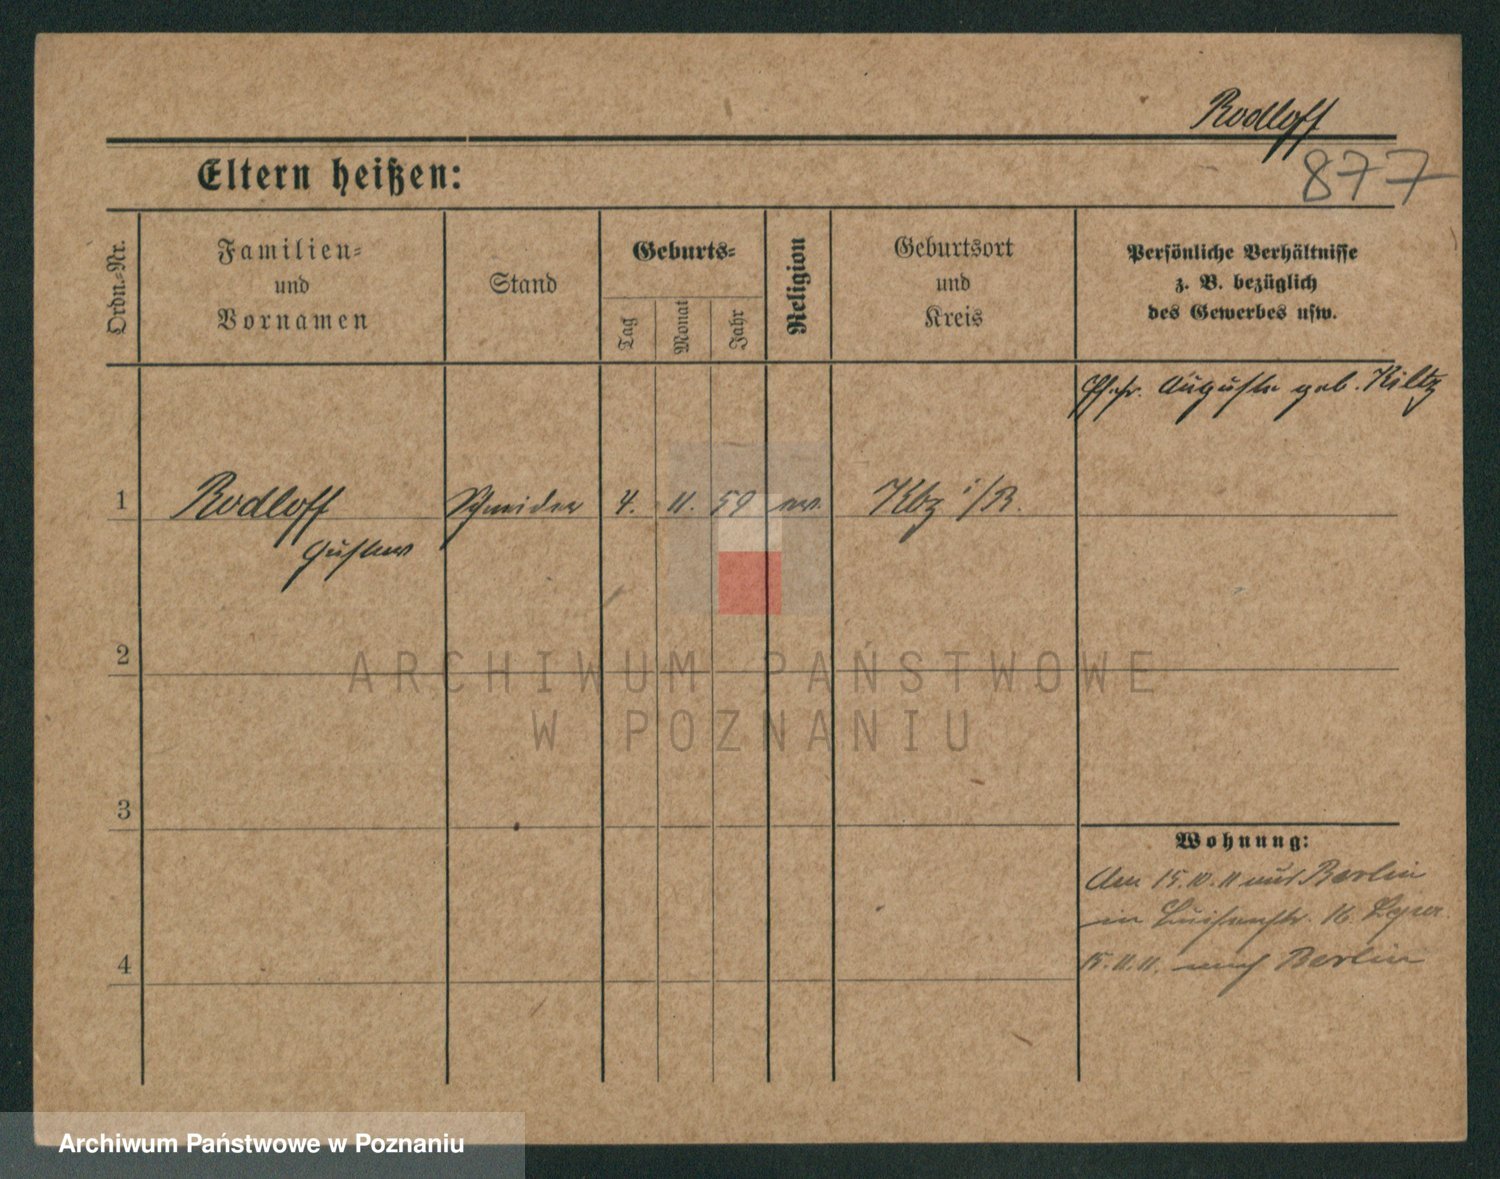 Rodloff
877
Eltern heißen:
Ordn.-Nr.
Familien-
und
Vornamen
Stand
Geburts-
Tag
Monat
Jahr
Religion
Geburtsort
und
Kreis
Persönliche Verhältnisse
z. B. bezüglich
des Gewerbes usw.
Auguste geb. Kiltz
1 Rodloff Schneider 4. 11. 59 ev. Kbz i/R.
Gustav
2
ARCHIWUM PAŃSTWOWE
W POZNANIU
3
Wohnung:
Am 15.10.11 aus Berlin
in Luisenstr. 16
4
15.11.11. nach Berlin
Archiwum Państwowe w Poznaniu